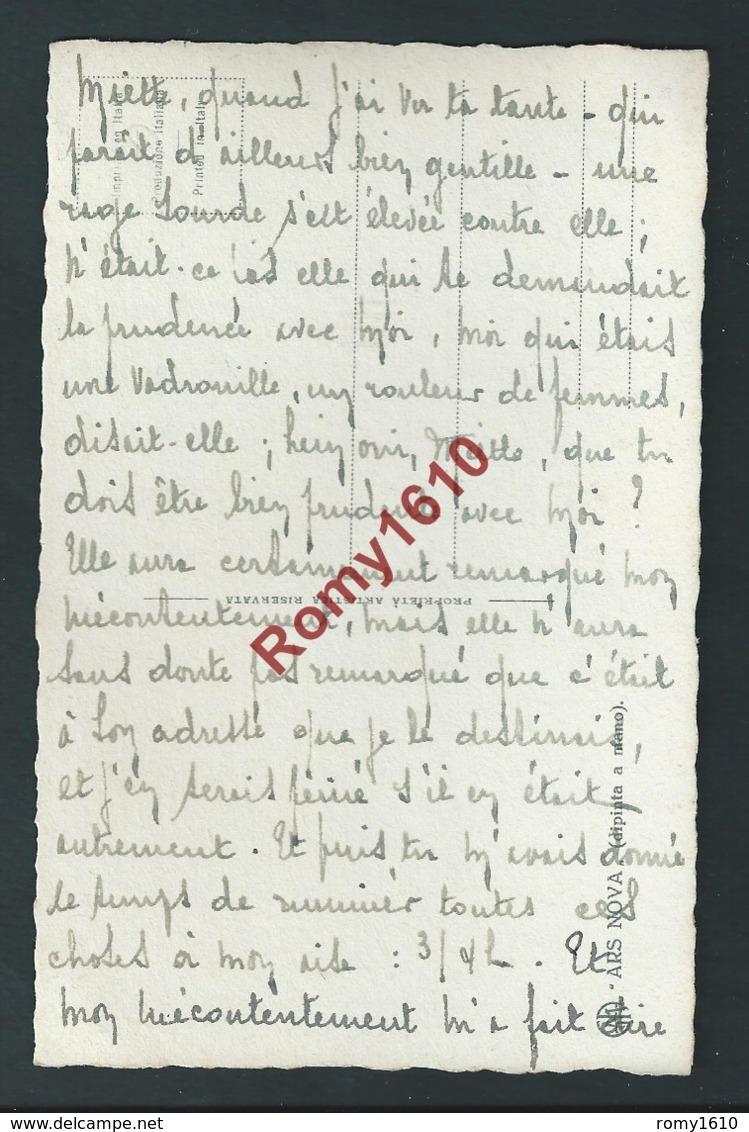 Miette, quand j'ai vu ta tante - qui
paraît d'ailleurs bien gentille - une
rage sourde s'est élevée contre elle ;
n'était-ce pas elle qui te demandait
la prudence avec moi, moi qui étais
une vadrouille, un rouleur de femmes,
disait-elle ; hein oui, Miette, que tu
dois être bien prudente avec moi ?
Elle aura certainement remarqué mon
mécontentement, mais elle n'aura
sans doute pas remarqué que c'était
à son adresse que je le destinais,
et j'en serais peiné s'il en était
autrement. Et puis tu m'avais donné
le temps de ruminer toutes ces
choses à mon aise : 3/4h. Et
mon mécontentement m'a fait dire
Imprimé en Italie
Produzione italiana
Printed in Italy
PROPRIETÀ ARTISTICA RISERVATA
ARS NOVA (dipinta a mano).
Romy1610
romy1610